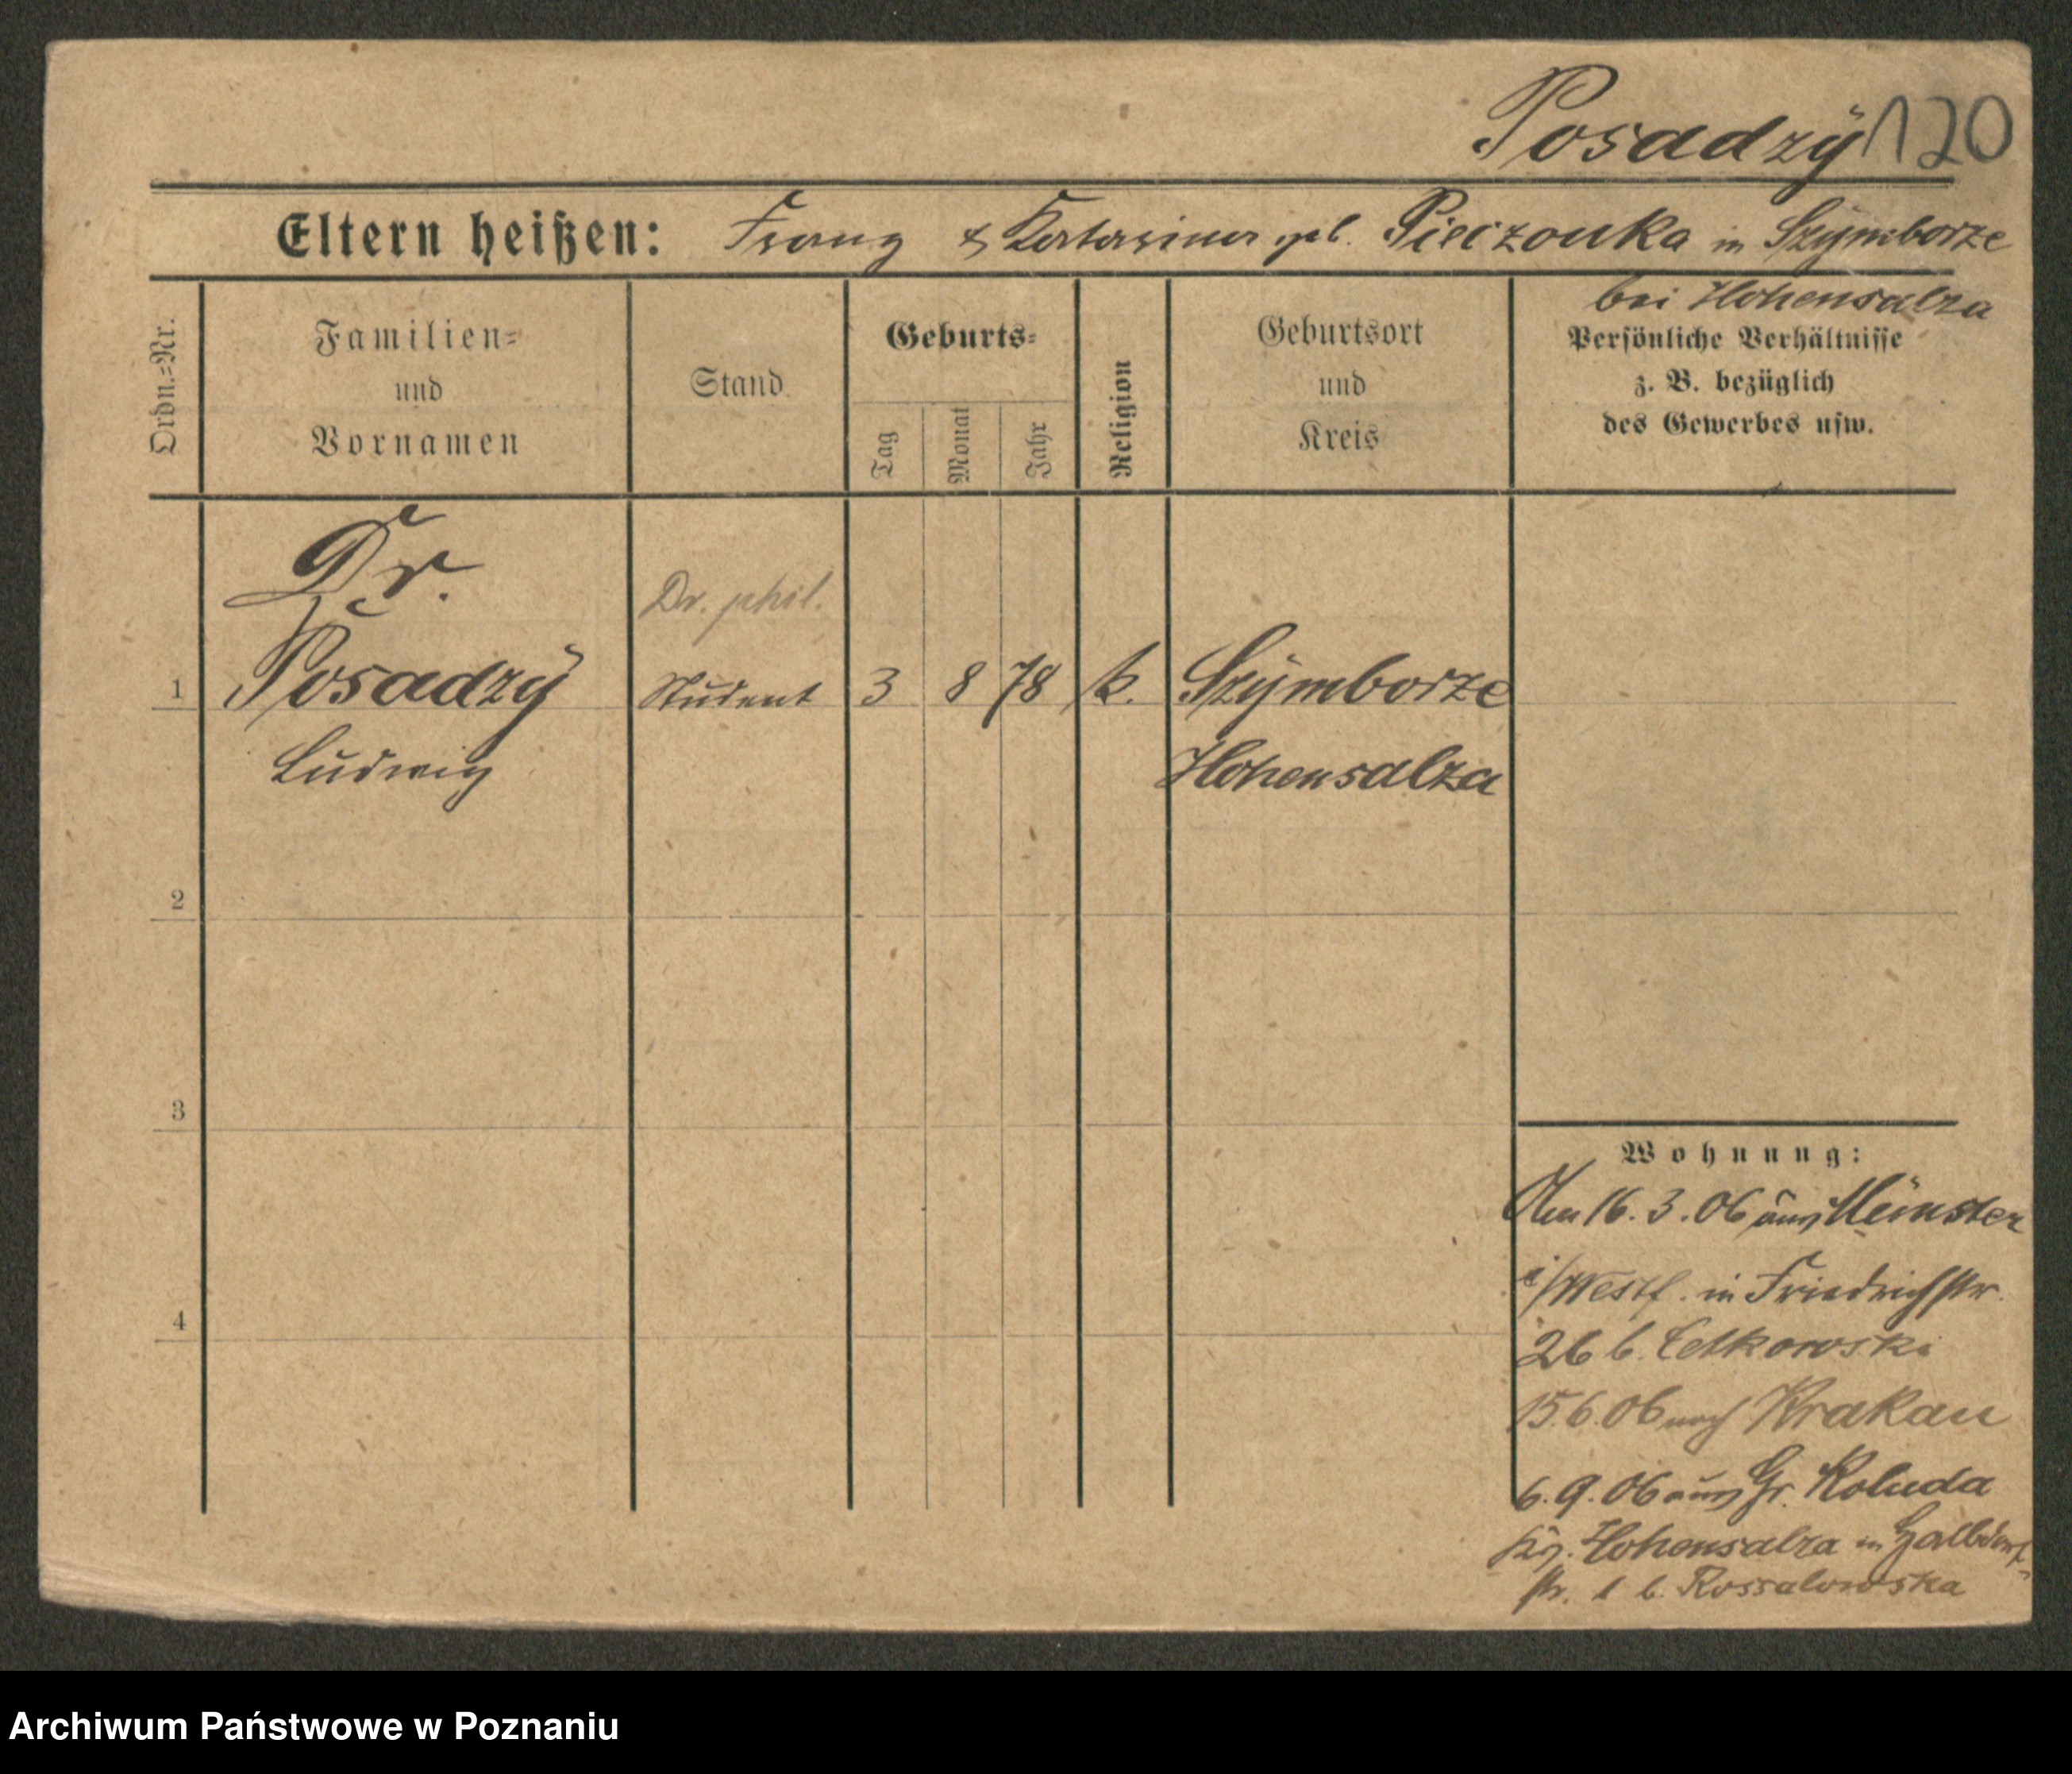 Posadzÿ 120
Eltern heißen: Franz & Katharina geb. Pieczonka in Szÿmborze
bei Hohensalza
Ordn.=Nr.
Familien=
und
Vornamen
Stand
Geburts=
Tag
Monat
Jahr
Religion
Geburtsort
und
Kreis
Persönliche Verhältnisse
z. B. bezüglich
des Gewerbes usw.
Dr.
Dr. phil.
1 Posadzÿ Student 3 8 78 k. Szÿmborze
Ludwig Hohensalza
2
3
4
Wohnung:
Am 16. 3. 06 aus Münster
i/Westf. in Friedrichstr.
26 b. Cetkowski
15.6.06 nach Krakau
6.9.06 aus Gr. Koluda
Kr. Hohensalza in Halbdorf-
str. 1 b. Rossalowska
Archiwum Państwowe w Poznaniu